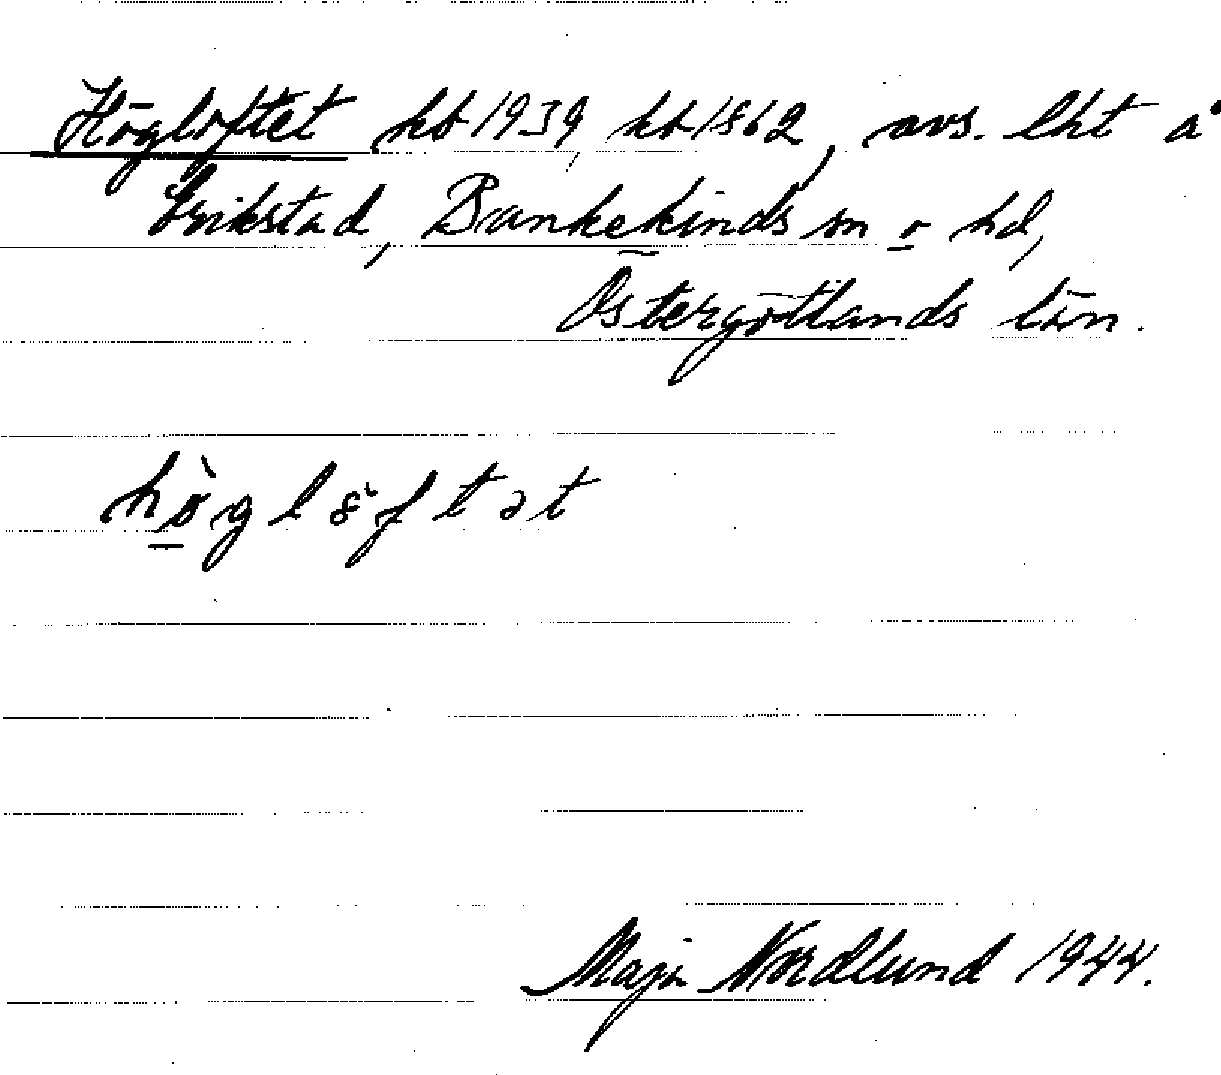 Högloftet hb 1939, hb 1862, avs. lht å
Erikstad, Bankekinds sn o hd,
Östergötlands län.
hö̀glȣ̀ftət
Maja Nordlund 1944.